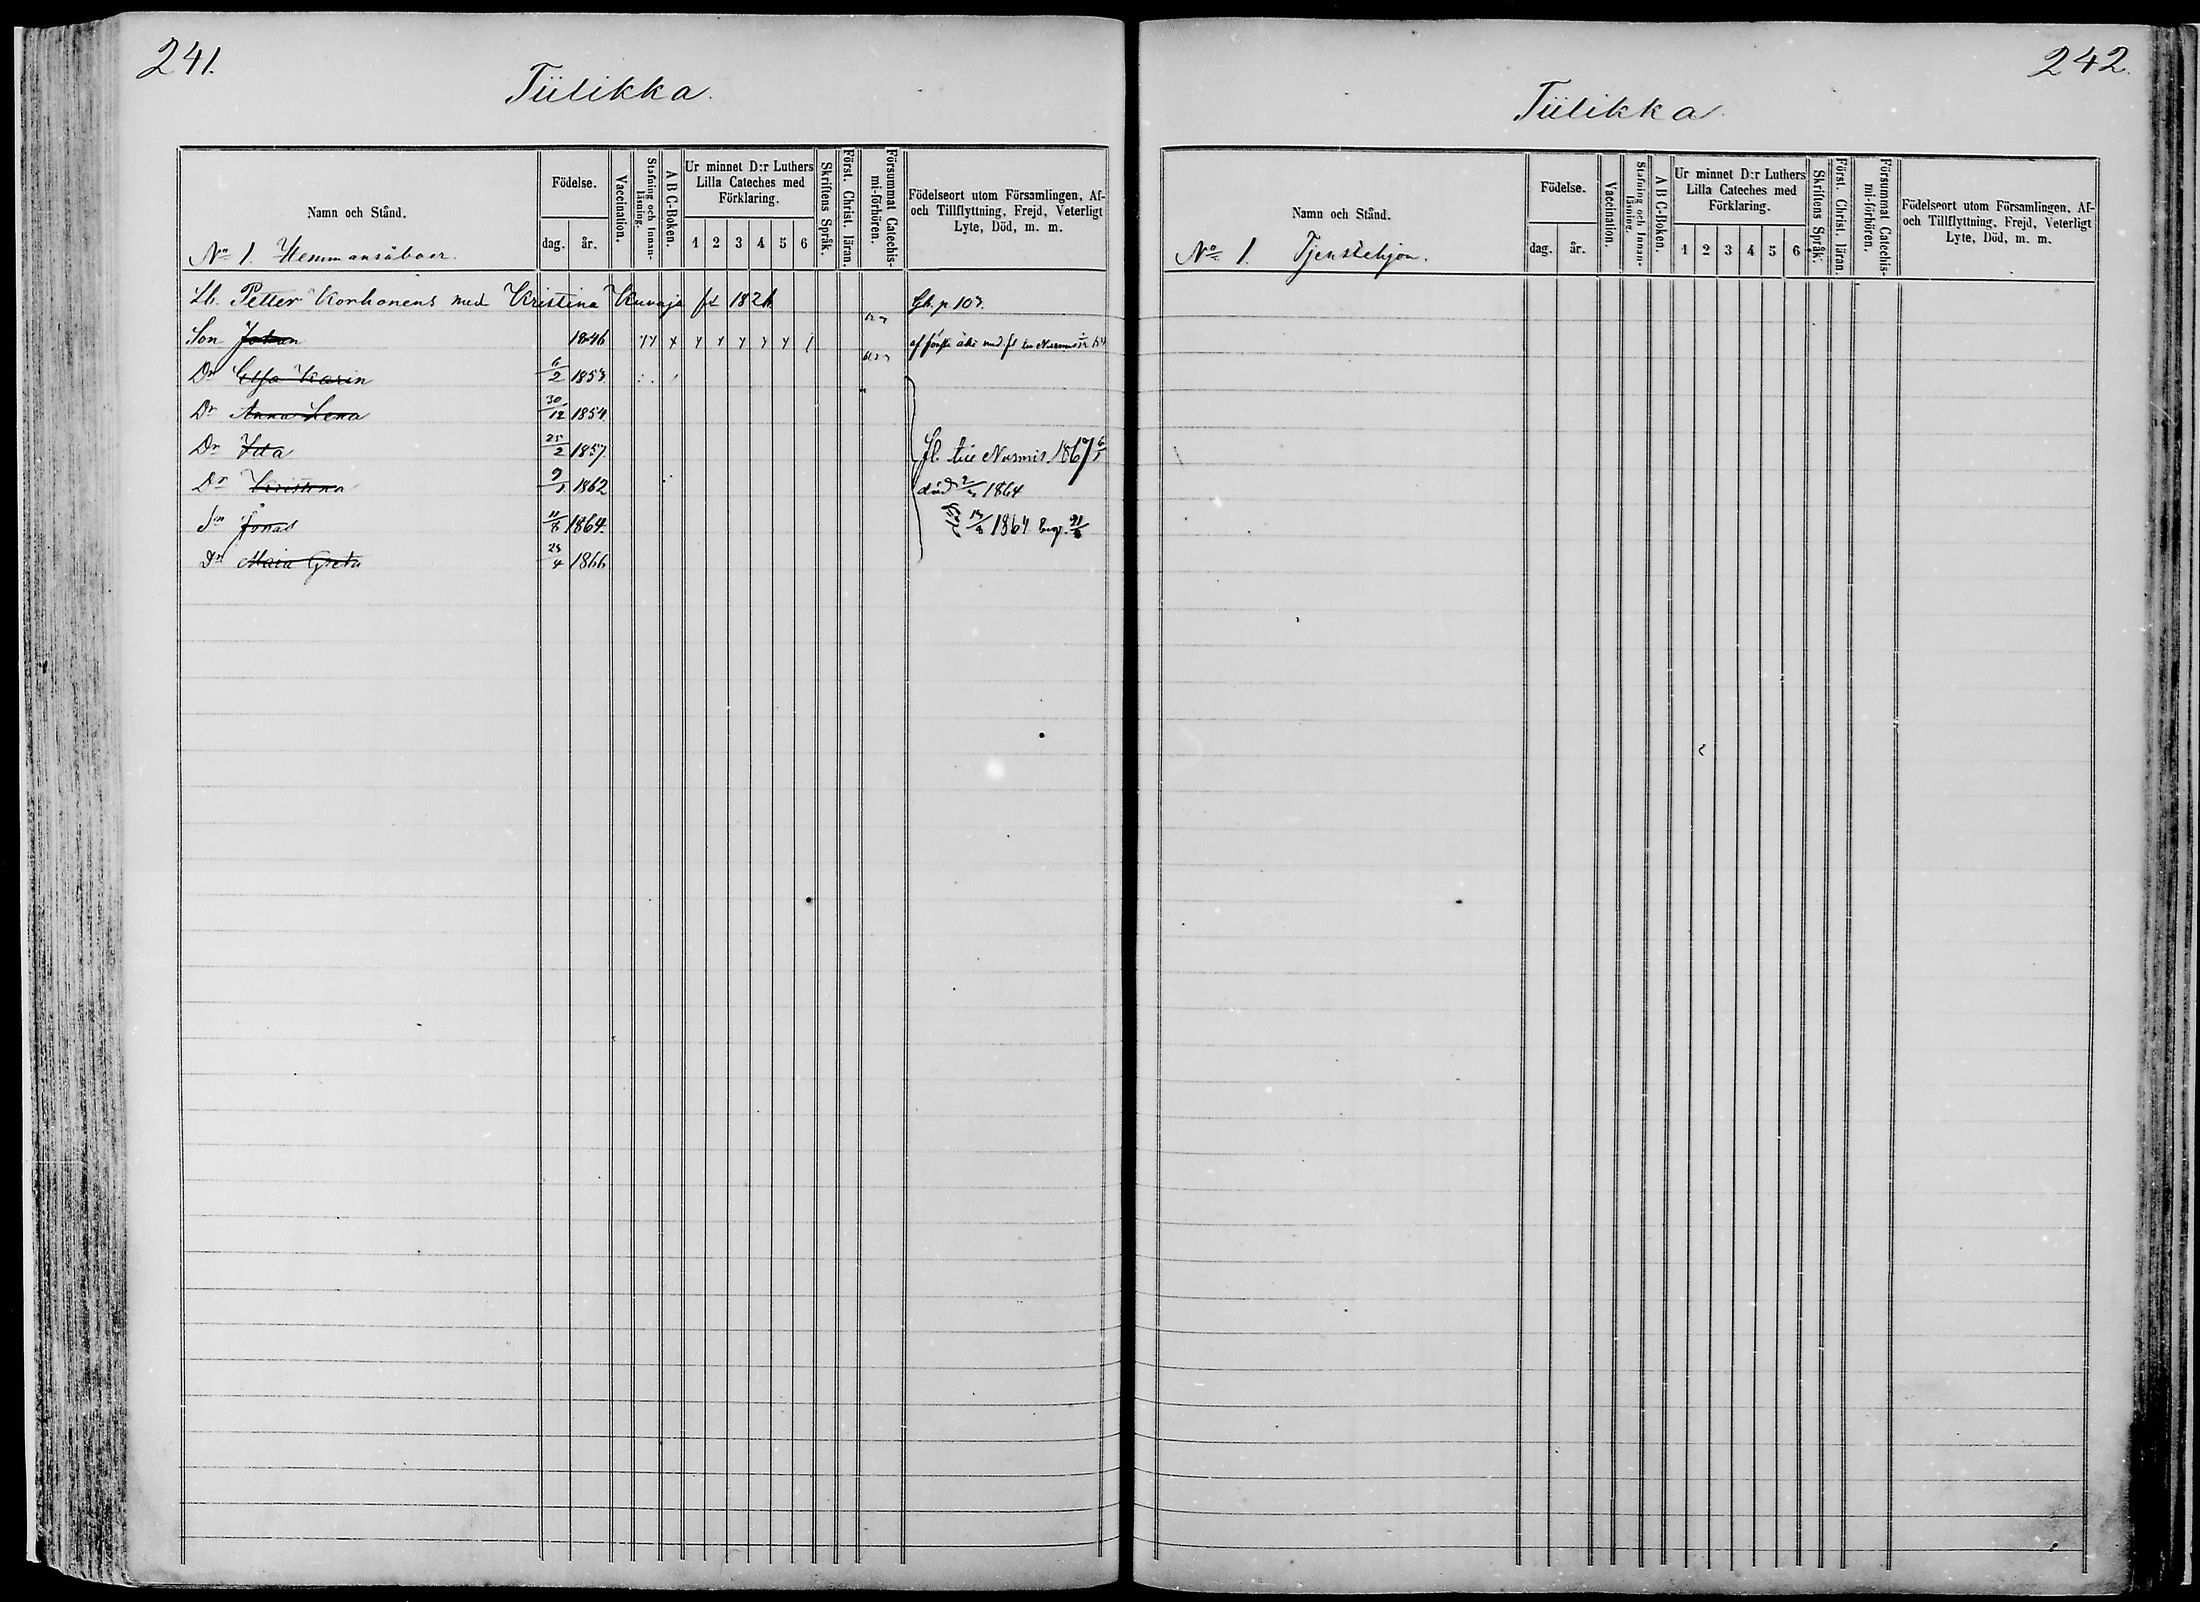 241.
Tiilikka.
Namn och Stånd.
Födelse.
dag.
år.
Vaccination.
Stafning och Innan-läsning.
A B C-Boken.
Ur minnet D:r Luthers
Lilla Cateches med
Förklaring.
1 2 3 4 5 6
Skriftens Språk.
Först. Christ. läran.
Försummat Catechis-mi-förhören.
Födelseort utom Församlingen, Af-
och Tillflyttning, Frejd, Veterligt
Lyte, Död, m. m.
No 1. Hemmansåboer.
Lb. Petter Korhonens med Kristina Kuvaja fd 1821. Lb. p 103.
Son Johan 1846
Dr Elsa Karin 6/2 1853.
Dr Anna Lena 30/12 1854.
Dr Ida 25/2 1857. fl. till Nurmis 1867
Dr Kristina 9/1 1862 död 1864
Sn Jonas 11/8 1864. 1864 Begr.
Dr Maia Greta 25/4 1866
242.
Tiilikka
Namn och Stånd.
Födelse.
dag.
år.
Vaccination.
Stafning och Innan-läsning.
A B C-Boken.
Ur minnet D:r Luthers
Lilla Cateches med
Förklaring.
1 2 3 4 5 6
Skriftens Språk.
Först. Christ. läran.
Försummat Catechis-mi-förhören.
Födelseort utom Församlingen, Af-
och Tillflyttning, Frejd, Veterligt
Lyte, Död, m. m.
No 1. Tjenstehjon.